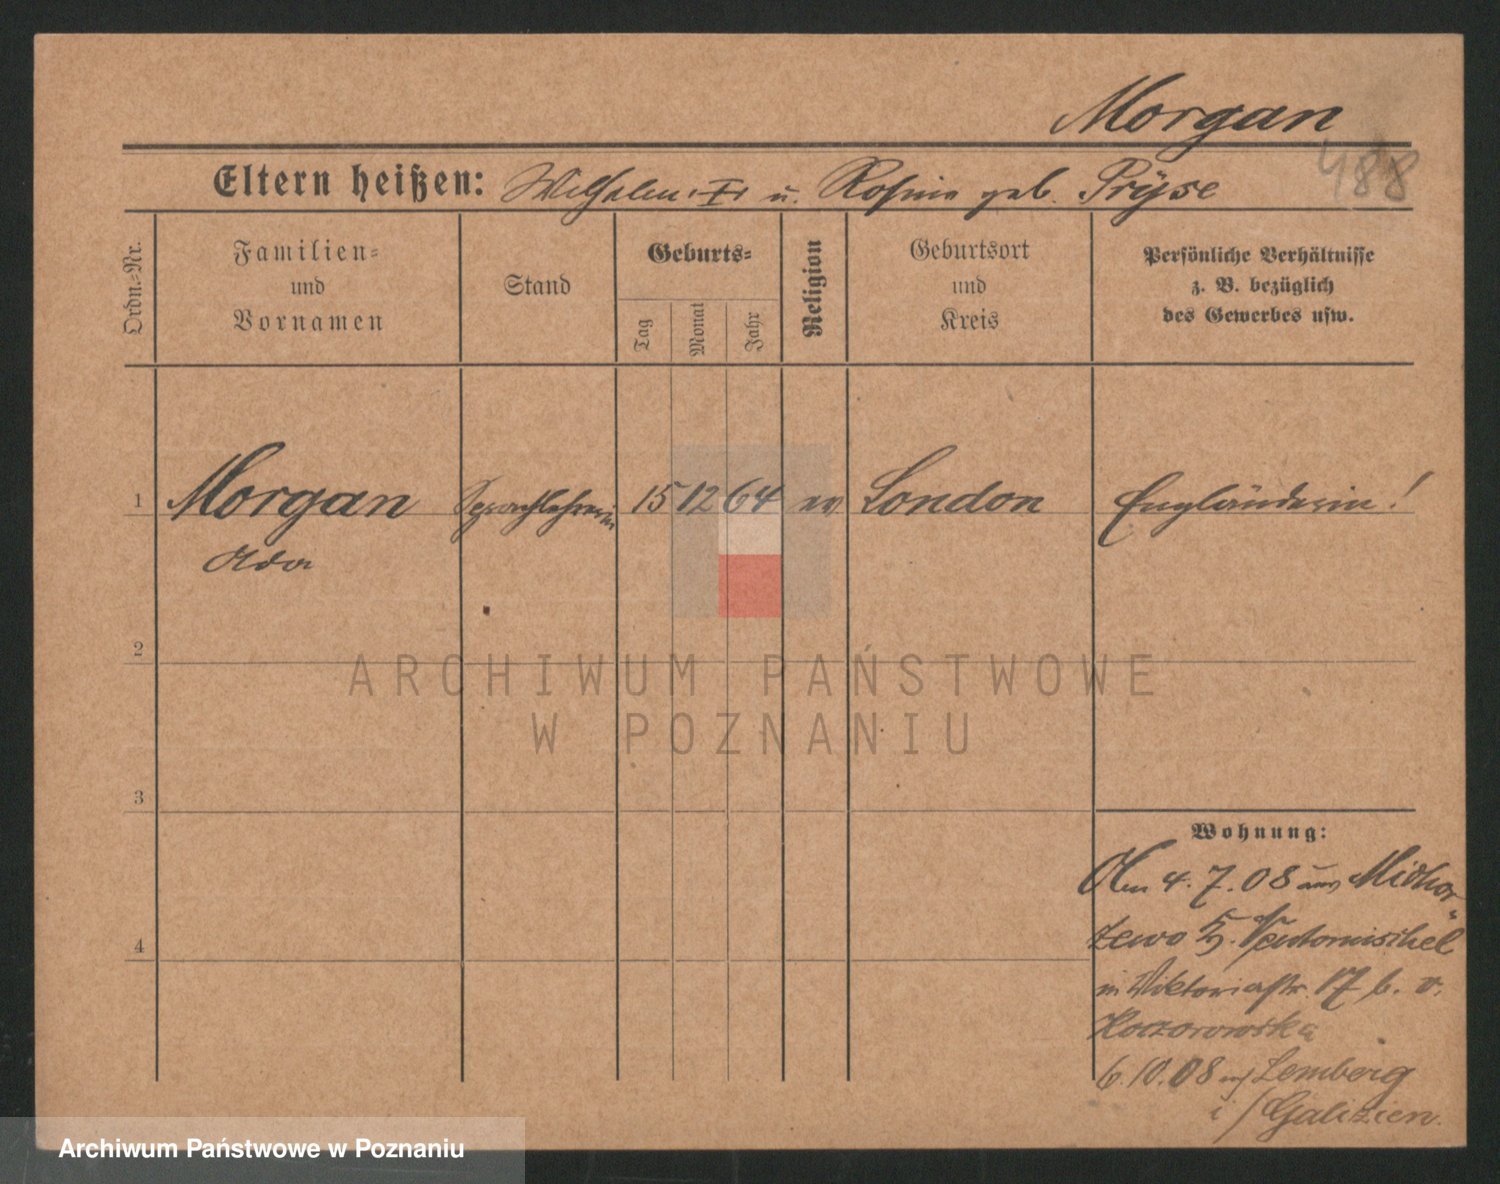 Morgan
488
Eltern heißen: Wilhelm I u. Rosine geb. Prÿse
Ordn.-Nr.
Familien-
und
Vornamen
Stand
Geburts-
Tag
Monat
Jahr
Religion
Geburtsort
und
Kreis
Persönliche Verhältnisse
z. B. bezüglich
des Gewerbes usw.
1 Morgan Sprachlehrerin 15 12 64 ev London Engländerin!
Ada
2
3
4
Wohnung:
Am 4.7.08 aus Michor-
zewo Neutomischel
in Viktoriastr. 17 b. v.
Koczorowska
6.10.08 Lemberg
i/Galizien.
ARCHIWUM PAŃSTWOWE
W POZNANIU
Archiwum Państwowe w Poznaniu